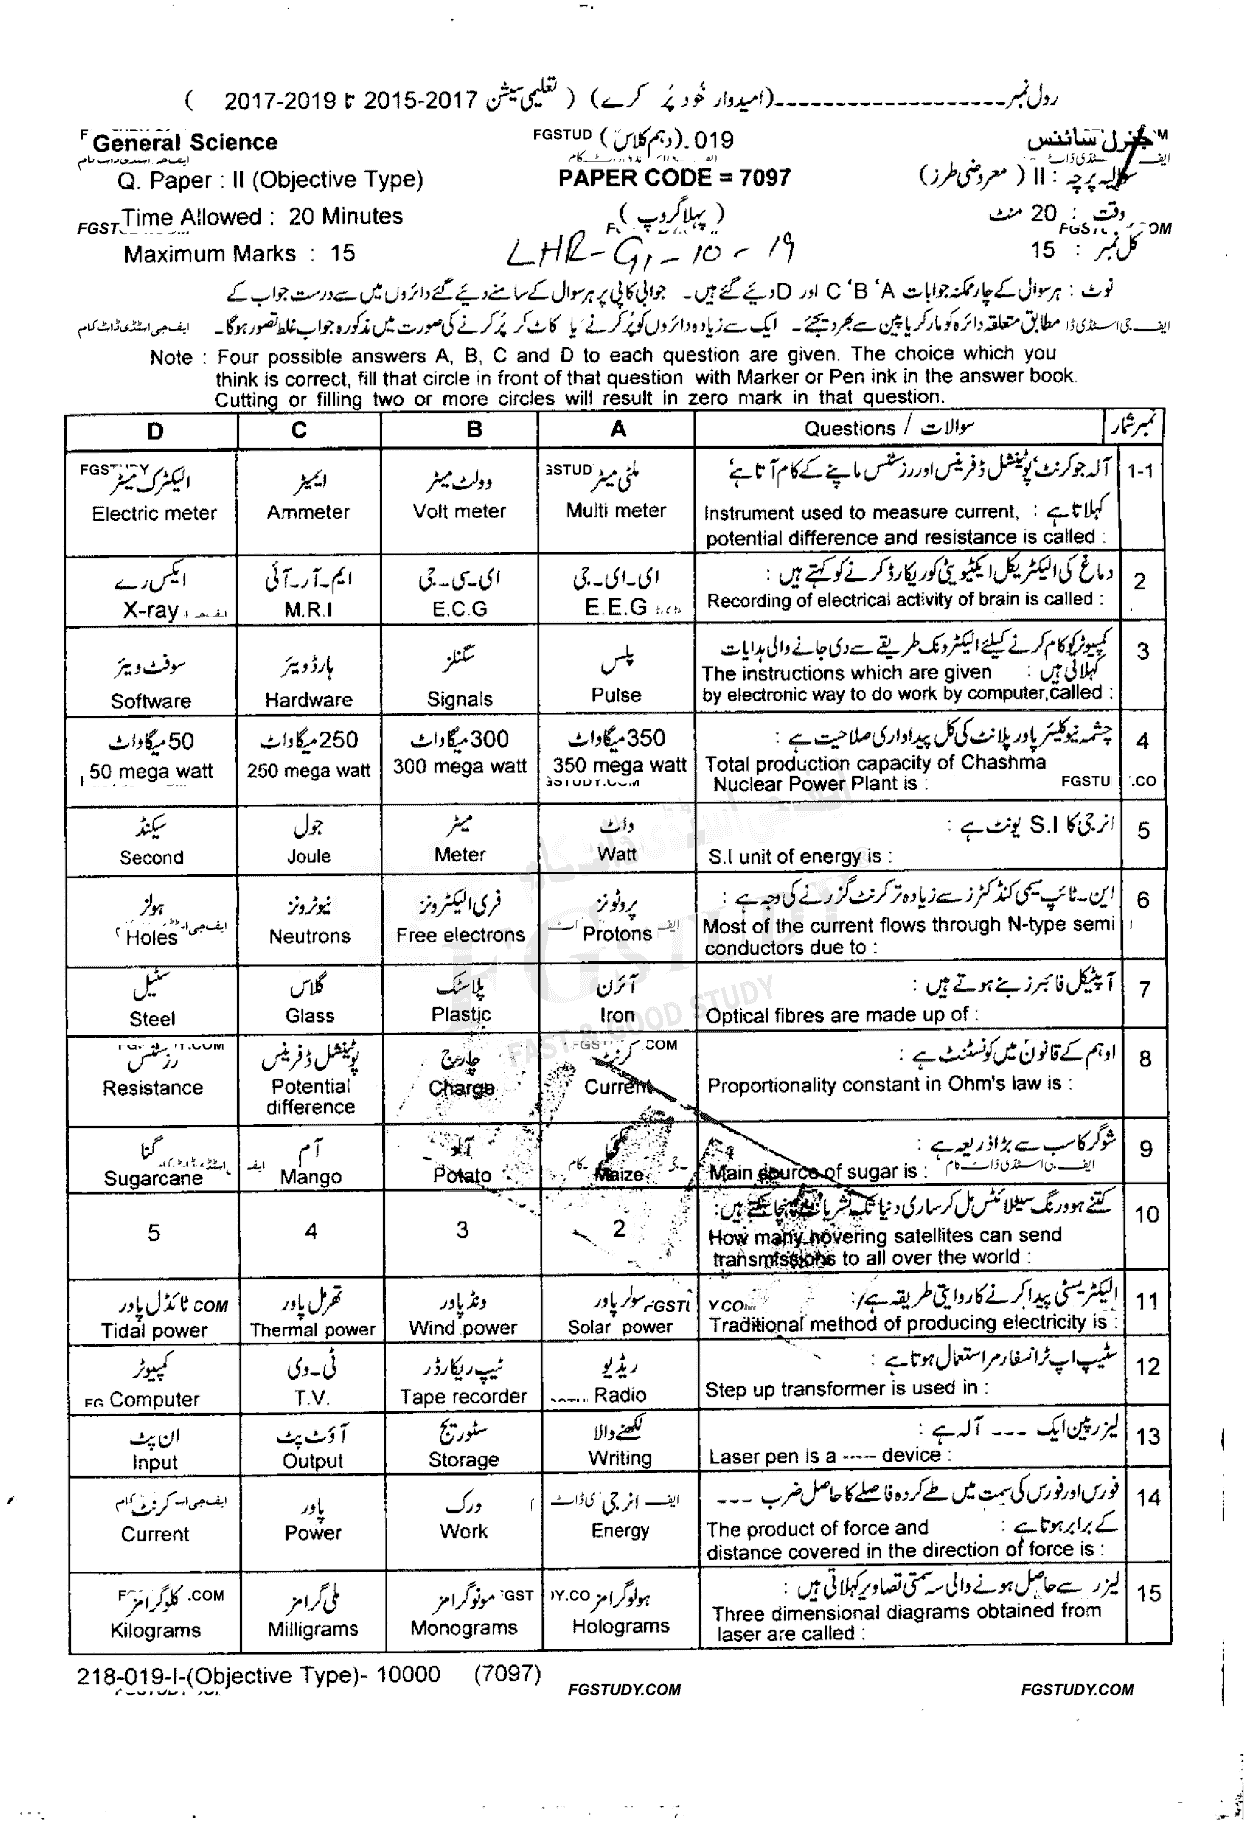 رول نمبر ـــــــــــــ (امیدوار خود پُر کرے) ( تعلیمی سیشن 2015-2017 تا 2017-2019 )
General Science FGSTUD (دہم کلاس) 019 جنرل سائنس
Q. Paper : II (Objective Type) PAPER CODE = 7097 سوالیہ پرچہ : II (معروضی طرز)
Time Allowed : 20 Minutes (پہلا گروپ) وقت : 20 منٹ
Maximum Marks : 15 LHR-G1-10-19 کل نمبر : 15
نوٹ : ہر سوال کے چار ممکنہ جوابات A ' B ' C اور D دیئے گئے ہیں۔ جوابی کاپی پر ہر سوال کے سامنے دیئے گئے دائروں میں سے درست جواب کے
مطابق متعلقہ دائرہ کو مارکر یا پین سے بھر دیجئے۔ ایک سے زیادہ دائروں کو پُر کرنے یا کاٹ کر پُر کرنے کی صورت میں مذکورہ جواب غلط تصور ہوگا۔ ایف جی اسٹڈی ڈاٹ کام
Note : Four possible answers A, B, C and D to each question are given. The choice which you
think is correct, fill that circle in front of that question with Marker or Pen ink in the answer book.
Cutting or filling two or more circles will result in zero mark in that question.
D C B A Questions / سوالات نمبر شمار
الیکٹرک میٹر ایمیٹر وولٹ میٹر ملٹی میٹر آلہ جو کرنٹ' پوٹینشل ڈفرینس اور رزسٹنس ماپنے کے کام آتا ہے' 1-1
Electric meter Ammeter Volt meter Multi meter Instrument used to measure current, : کہلاتا ہے
potential difference and resistance is called :
ایکس رے ایم۔آر۔آئی ای۔سی۔جی ای۔ای۔جی دماغ کی الیکٹریکل ایکٹیویٹی کو ریکارڈ کرنے کو کہتے ہیں : 2
X-ray M.R.I E.C.G E.E.G Recording of electrical activity of brain is called :
سوفٹ ویئر ہارڈ ویئر سگنلز پلس کمپیوٹر کو کام کرنے کیلئے الیکٹرونک طریقے سے دی جانے والی ہدایات 3
The instructions which are given : کہلاتی ہیں
Software Hardware Signals Pulse by electronic way to do work by computer,called :
50میگاواٹ 250میگاواٹ 300میگاواٹ 350میگاواٹ چشمہ نیوکلیئر پاور پلانٹ کی کل پیداواری صلاحیت ہے : 4
50 mega watt 250 mega watt 300 mega watt 350 mega watt Total production capacity of Chashma
Nuclear Power Plant is :
سیکنڈ جول میٹر واٹ انرجی کا S.I یونٹ ہے : 5
Second Joule Meter Watt S.I unit of energy is :
ہولز نیوٹرونز فری الیکٹرونز پروٹونز این۔ٹائپ سیمی کنڈکٹرز سے زیادہ تر کرنٹ گزرنے کی وجہ ہے : 6
Holes Neutrons Free electrons Protons Most of the current flows through N-type semi
conductors due to :
سٹیل گلاس پلاسٹک آئرن آپٹیکل فائبرز بنے ہوتے ہیں : 7
Steel Glass Plastic Iron Optical fibres are made up of :
رزسٹنس پوٹینشل ڈفرینس چارج کرنٹ اوہم کے قانون میں کونسٹنٹ ہے : 8
Resistance Potential difference Charge Current Proportionality constant in Ohm's law is :
گنا آم آلو مکئی شوگر کا سب سے بڑا ذریعہ ہے : 9
Sugarcane Mango Potato Maize Main source of sugar is :
کتنے ہوورنگ سیٹلائٹس مل کر ساری دنیا تک نشریات پہنچا سکتے ہیں: 10
5 4 3 2 How many hovering satellites can send
transmissions to all over the world :
ٹائڈل پاور تھرمل پاور ونڈ پاور سولر پاور الیکٹریسٹی پیدا کرنے کا روایتی طریقہ ہے: 11
Tidal power Thermal power Wind power Solar power Traditional method of producing electricity is :
کمپیوٹر ٹی۔وی ٹیپ ریکارڈر ریڈیو سٹیپ اپ ٹرانسفارمر استعمال ہوتا ہے : 12
Computer T.V. Tape recorder Radio Step up transformer is used in :
ان پٹ آؤٹ پٹ سٹوریج لکھنے والا لیزر پین ایک --- آلہ ہے : 13
Input Output Storage Writing Laser pen is a ---- device :
کرنٹ پاور ورک انرجی فورس اور فورس کی سمت میں طے کردہ فاصلے کا حاصل ضرب --- 14
Current Power Work Energy The product of force and : کے برابر ہوتا ہے
distance covered in the direction of force is :
کلوگرامز ملی گرامز مونوگرامز ہولوگرامز لیزر سے حاصل ہونے والی سہ سمتی تصاویر کہلاتی ہیں : 15
Kilograms Milligrams Monograms Holograms Three dimensional diagrams obtained from
laser are called :
218-019-I-(Objective Type)- 10000 (7097)
FGSTUDY.COM FGSTUDY.COM